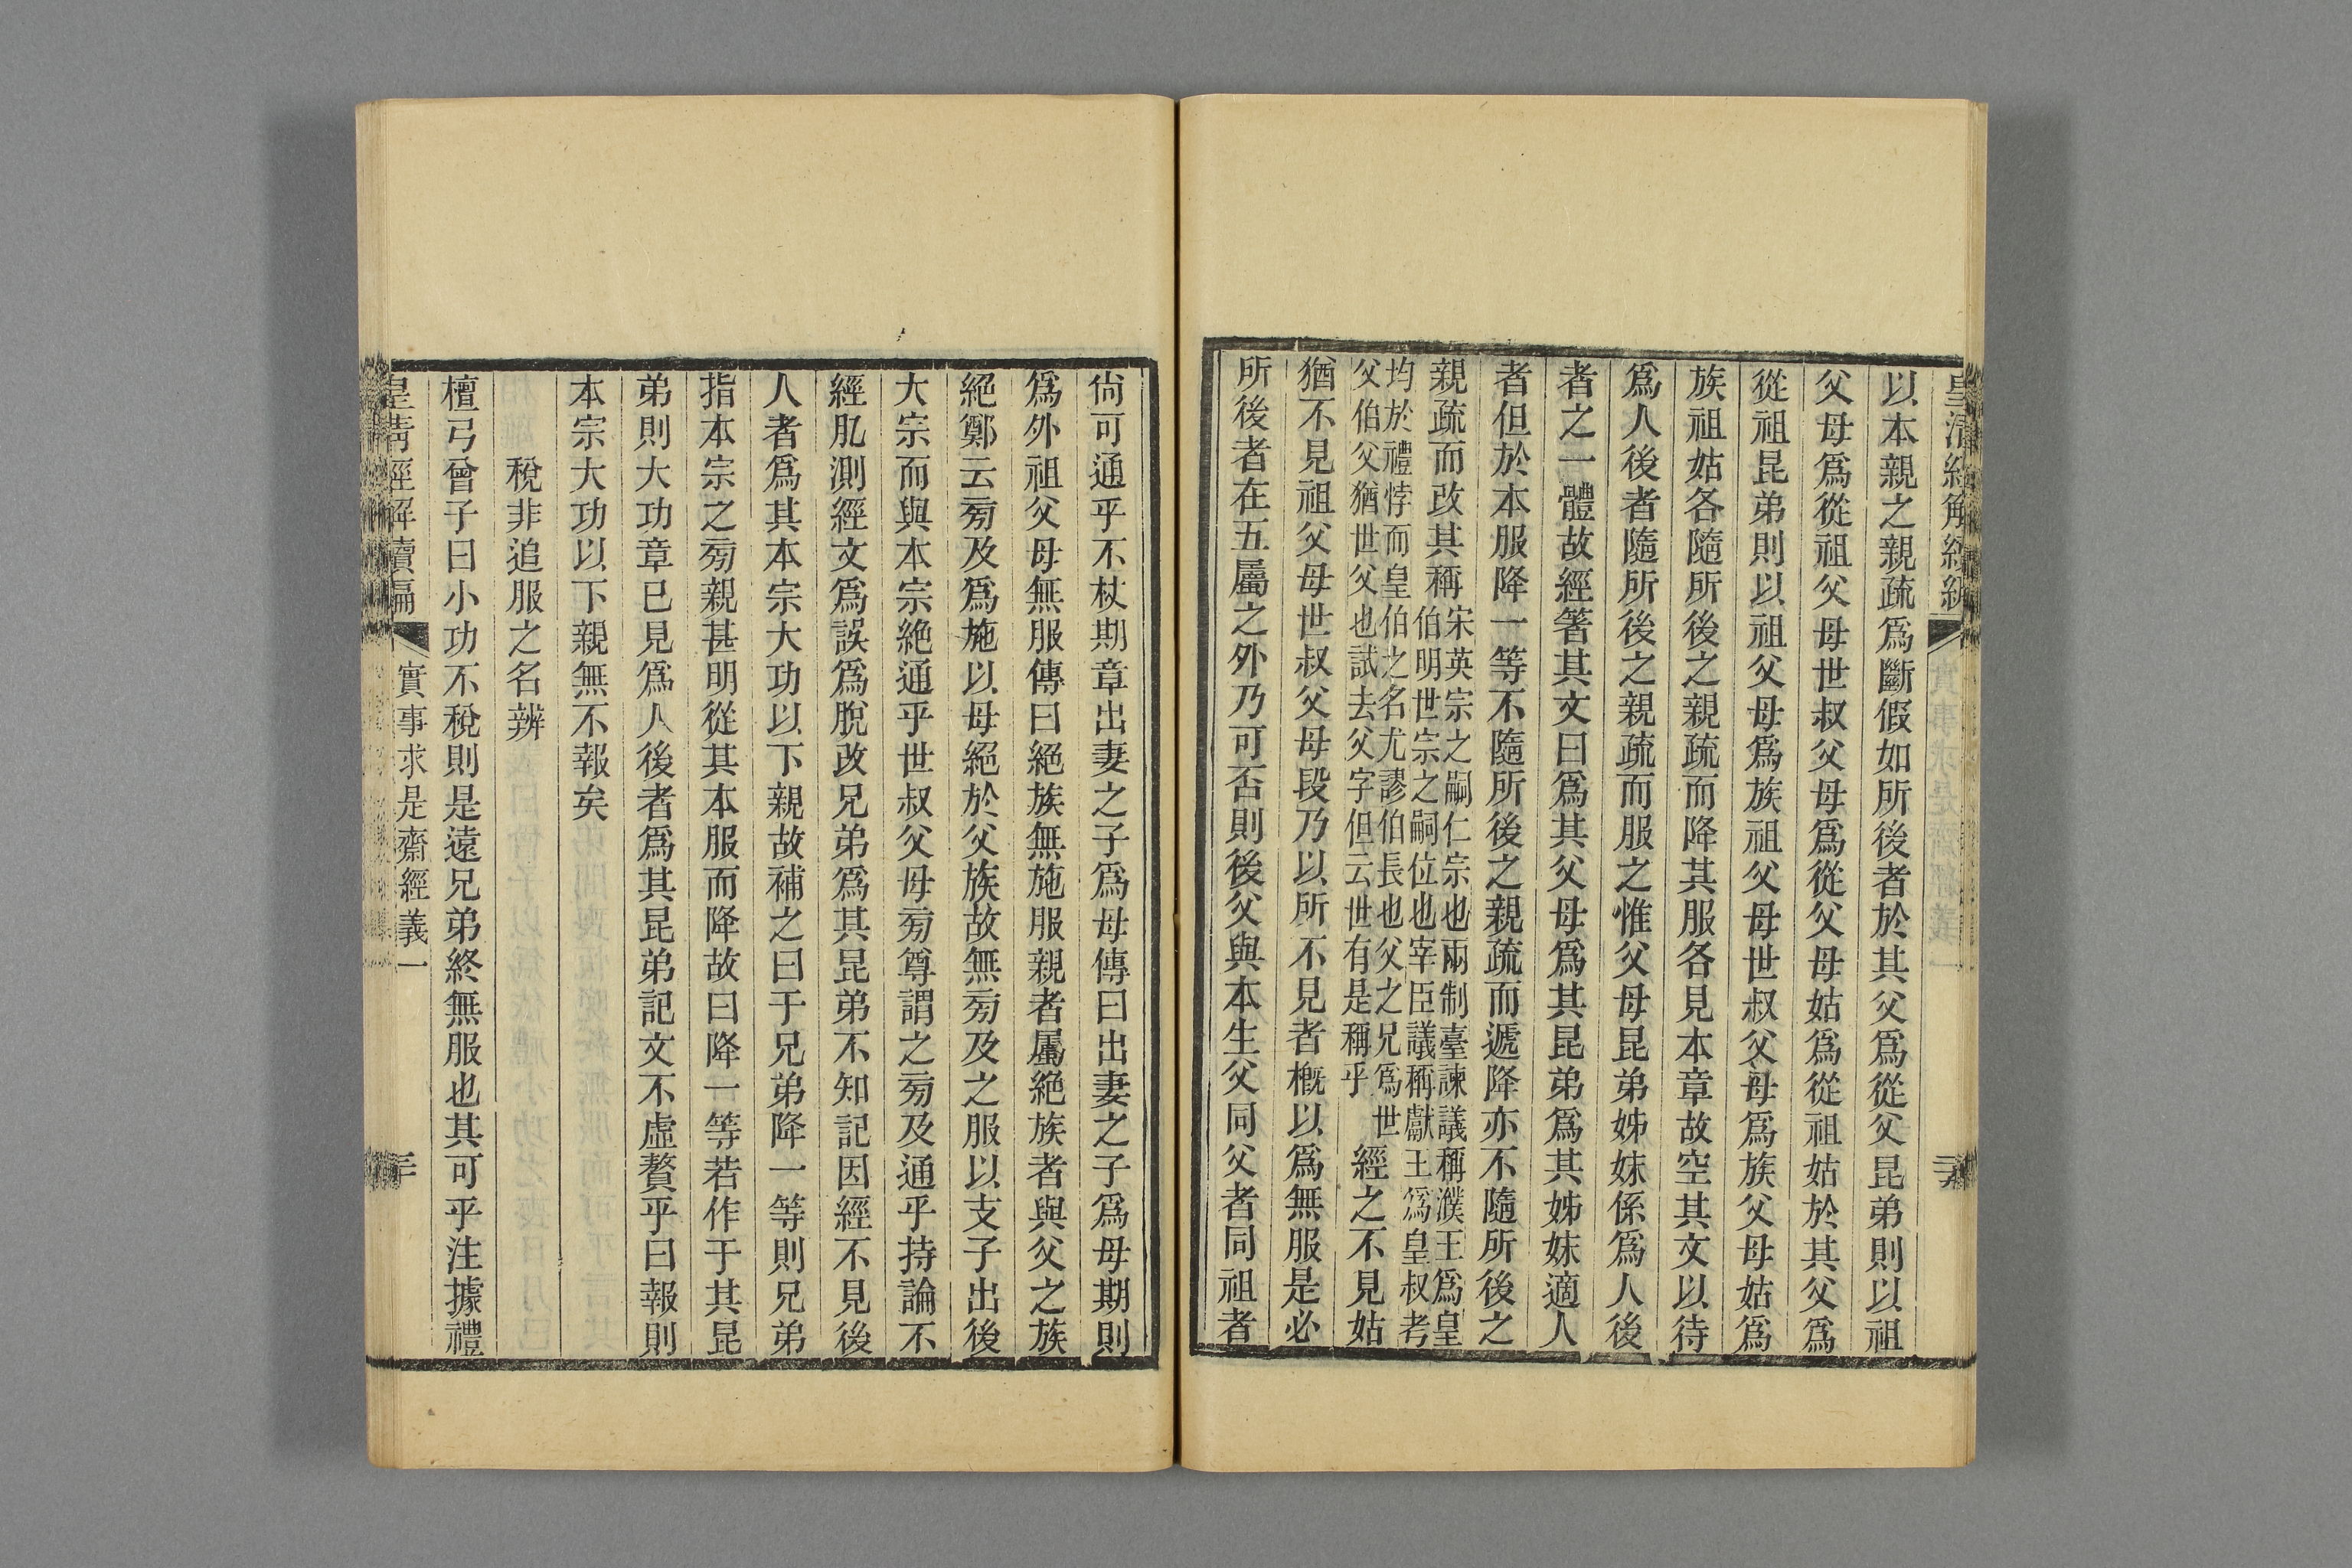 以本親之親疏爲斷假如所後者於其父爲從父昆弟則以祖
父母爲從祖父母世叔父母爲從父母姑爲從祖姑於其父爲
從祖昆弟則以祖父母爲族祖父母世叔父母爲族父母姑爲
族祖姑各隨所後之親疏而降其服各見本章故空其文以待
爲人後者隨所後之親疏而服之惟父母昆弟姊妹係爲人後
者之一體故經箸其文曰爲其父母爲其昆弟爲其姊妹適人
者但於本服降一等不隨所後之親疏而遞降亦不隨所後之
親疏而改其稱宋英宗之嗣仁宗也兩制臺諫議稱濮王爲皇
伯明世宗之嗣位也宰臣議稱獻王爲皇叔考
均於禮悖而皇伯之名尤謬伯長也父之兄爲世
父伯父猶世父也試去父字但云世有是稱乎經之不見姑
猶不見祖父母世叔父母段乃以所不見者槪以爲無服是必
所後者在五屬之外乃可否則後父與本生父同父者同祖者
尙可通乎不杖期章出妻之子爲母傳曰出妻之子爲母期則
爲外祖父母無服傳曰絕族無施服親者屬絕族者與父之族
絕鄭云㫄及爲施以母絕於父族故無㫄及之服以支子出後
大宗而與本宗絕通乎世叔父母㫄尊謂之㫄及通乎持論不
經肊測經文爲誤爲脫改兄弟爲其昆弟不知記因經不見後
人者爲其本宗大功以下親故補之曰于兄弟降一等則兄弟
指本宗之㫄親甚明從其本服而降故曰降一等若作于其昆
弟則大功章已見爲人後者爲其昆弟記文不虛贅乎曰報則
本宗大功以下親無不報矣
稅非追服之名辨
檀弓曾子曰小功不稅則是遠兄弟終無服也其可乎注據禮
皇淸經解續編
實事求是齋經義一
三